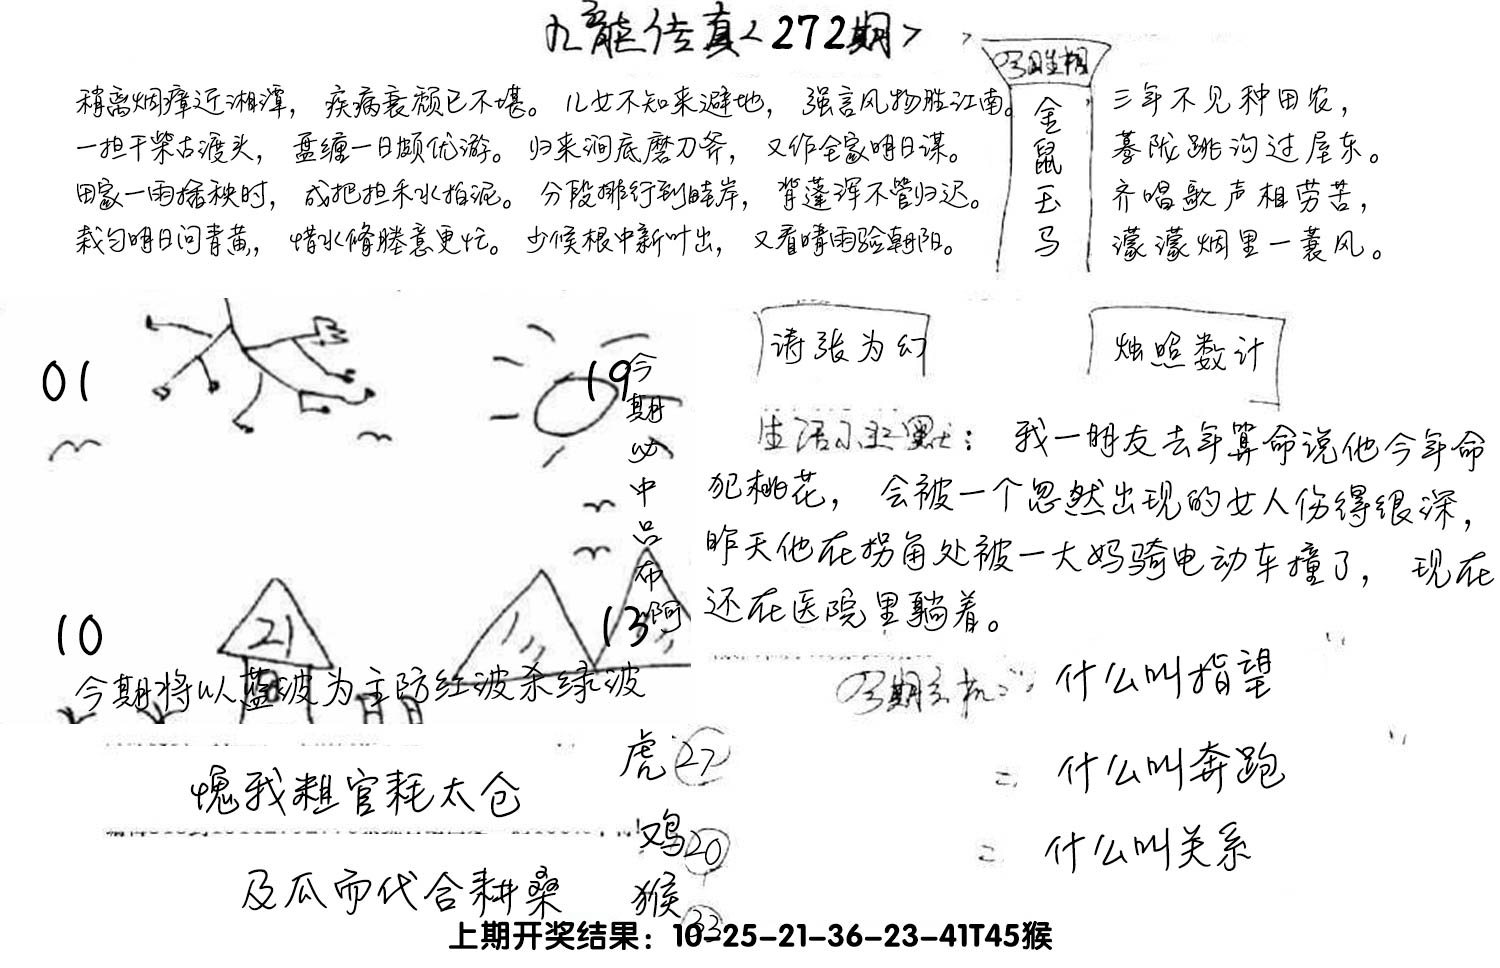 九龙传真<272期>
今日生相
金鼠玉马
稍离烟瘴近湘潭，疾病衰颓已不堪。儿女不知来避地，强言风物胜江南。
一担干柴古渡头，盘缠一日颇优游。归来涧底磨刀斧，又作全家明日谋。
田家一雨插秧时，成把担禾水拍泥。分段排行到畦岸，背蓬浑不管归迟。
栽匀明日问青黄，惜水脩塍意更忙。少候根中新叶出，又看晴雨验朝阳。
三年不见种田农，
蓦陇跳沟过屋东。
齐唱歌声相劳苦，
濛濛烟里一蓑风。
01
19
10
21
13
今期必中吕布啊
今期将以蓝波为主防红波杀绿波
诪张为幻
烛照数计
生活小幽默：我一朋友去年算命说他今年命
犯桃花，会被一个忽然出现的女人伤得很深，
昨天他在拐角处被一大妈骑电动车撞了，现在
还在医院里躺着。
什么叫指望
什么叫奔跑
什么叫关系
愧我粗官耗太仓
及瓜而代合耕桑
虎27
鸡20
猴33
上期开奖结果：10-25-21-36-23-41T45猴